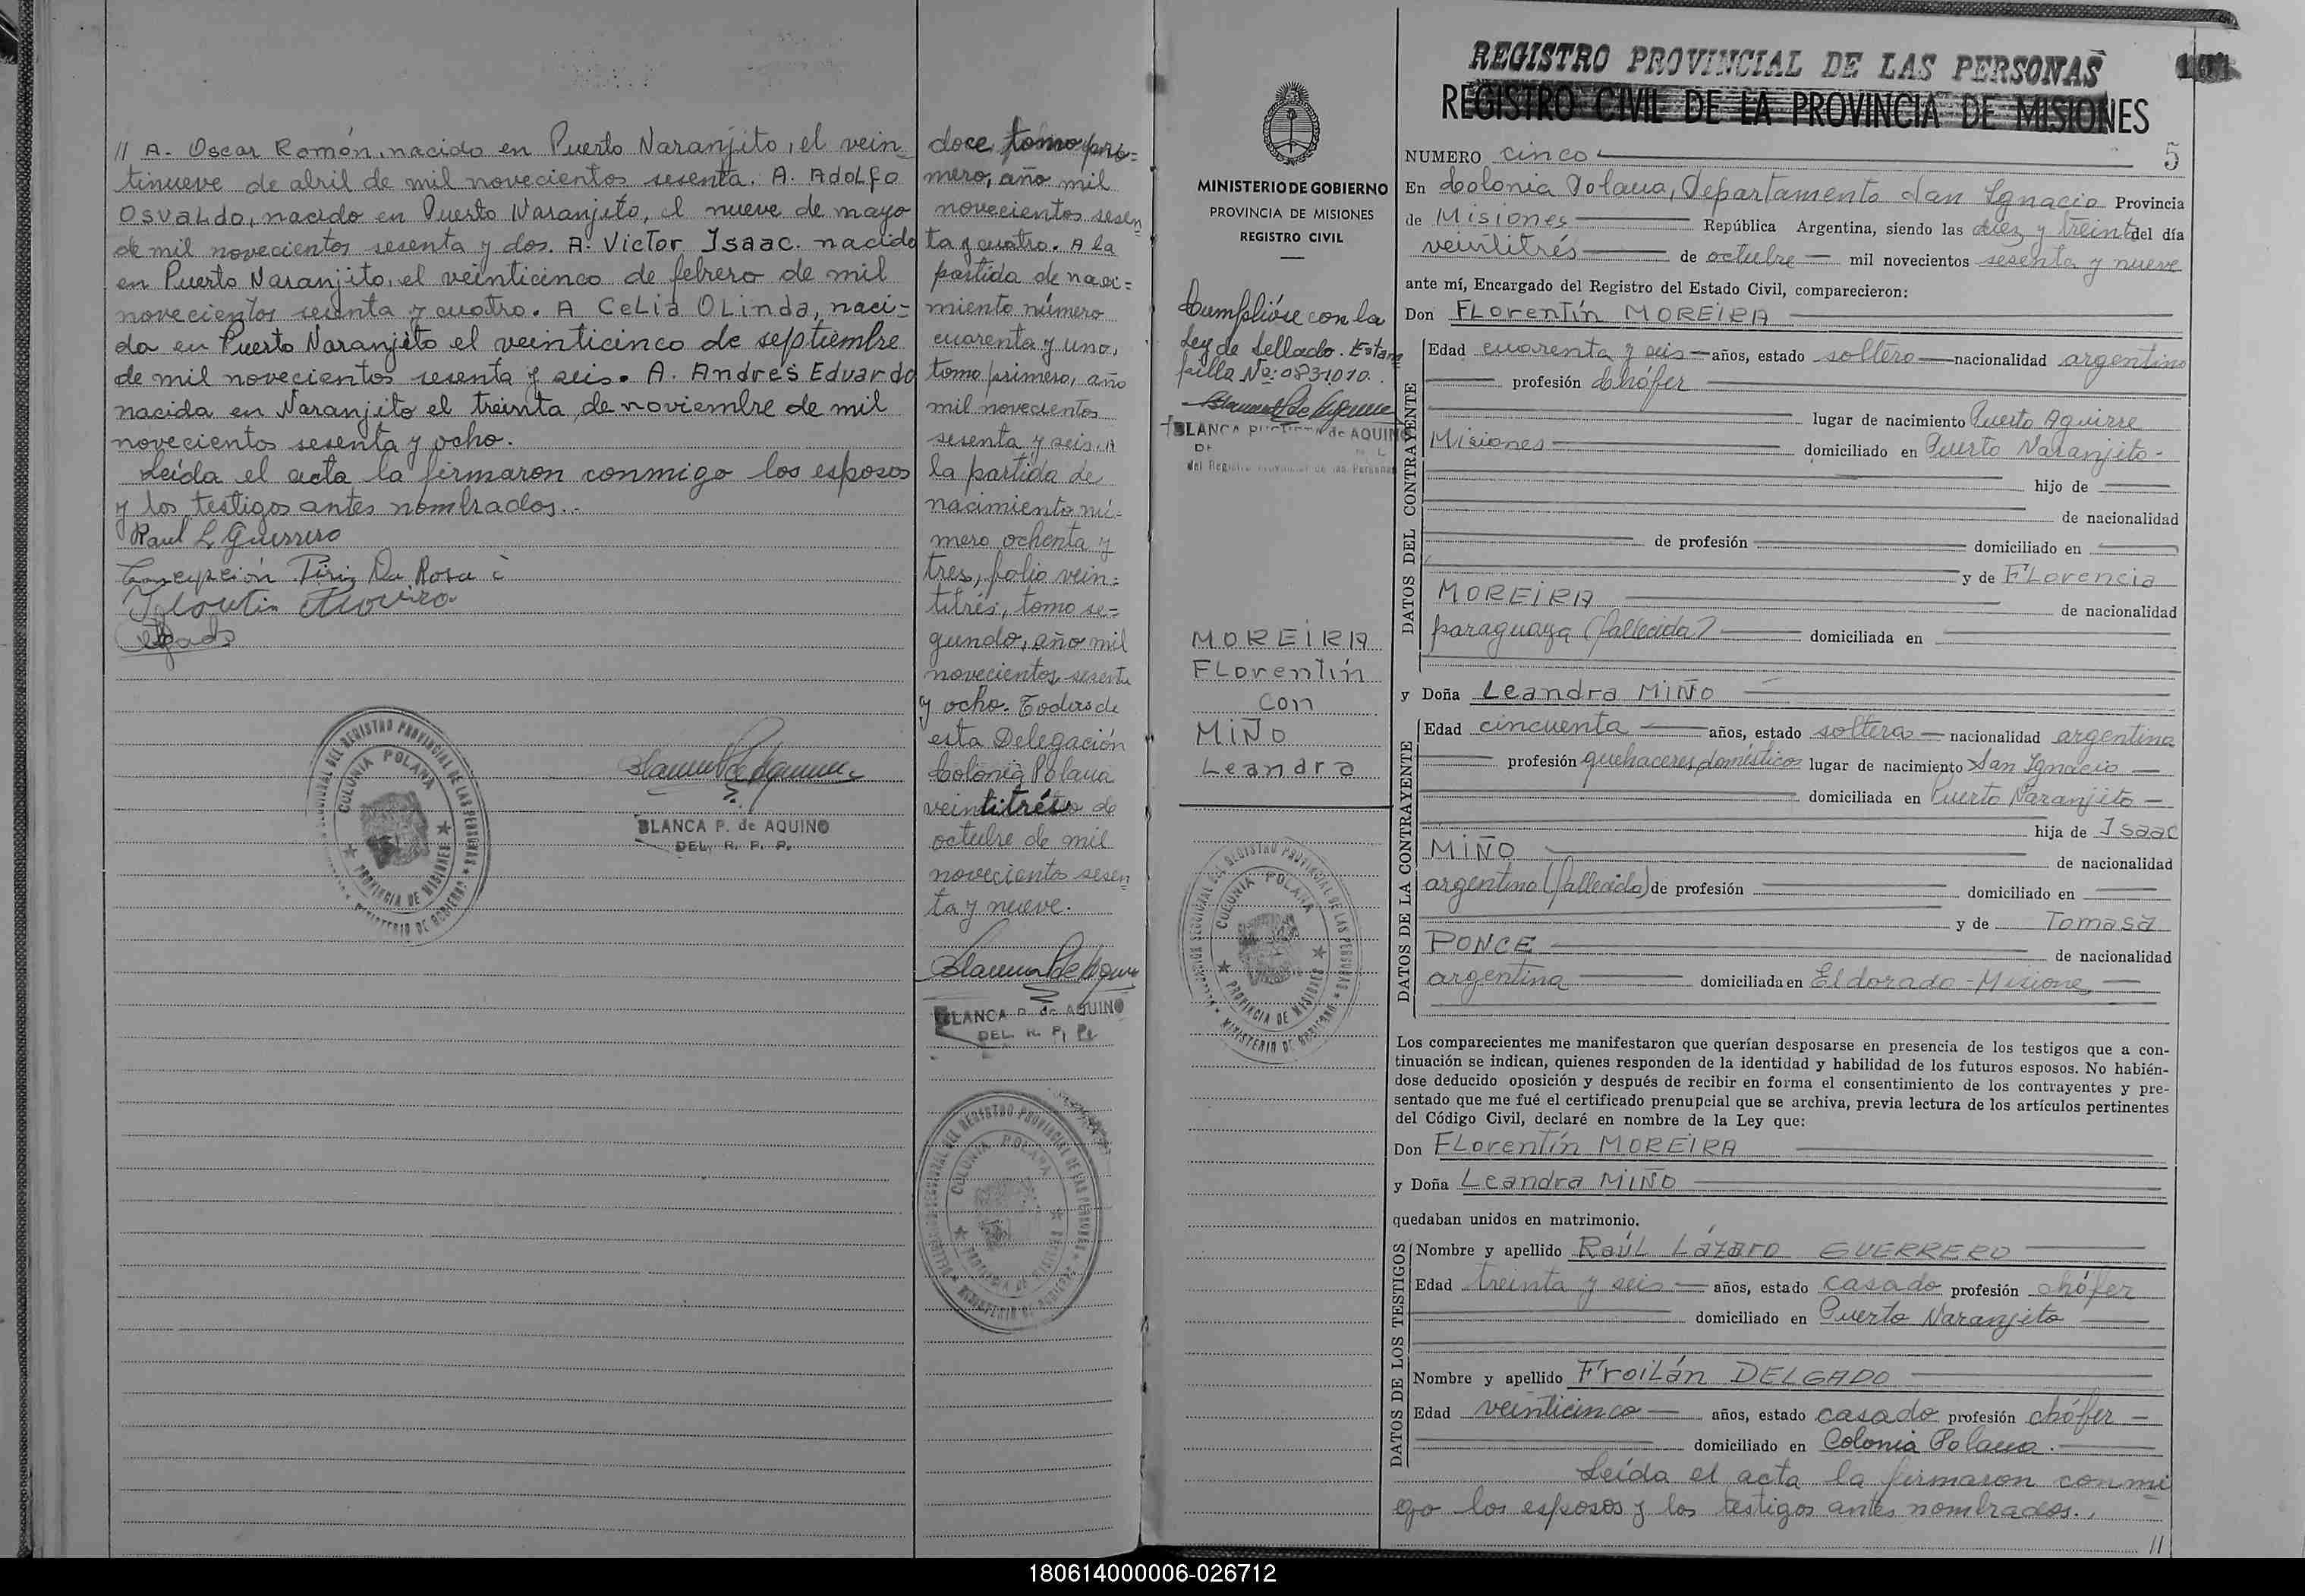 // A. Oscar Ramón, nacido en Puerto Naranjito, el vein-
tinueve de abril de mil novecientos sesenta. A. ADOLFO
OSVALDO, nacido en Puerto Naranjito, el nueve de mayo
de mil novecientos sesenta y dos. A. Victor Isaac. nacido
en Puerto Naranjito, el veinticinco de febrero de mil
novecientos sesenta y cuatro. A CELIA OLINDA, naci=
da en Puerto Naranjito el veinticinco de septiembre
de mil novecientos sesenta y seis. A. Andrés Eduardo
nacida en Naranjito el treinta de noviembre de mil
novecientos sesenta y ocho.
Leída el acta la firmaron conmigo los esposos
y los testigos antes nombrados..
Raul L Guerrero
Concepción Piriz Da Rosa
Florentin Moreira
BLANCA P. de AQUINO
DEL. R. P. P.
COLONIA POLANA
PROVINCIA DE MISIONES
doce, tomo pri-
mero, año mil
novecientos sesen
ta y cuatro. A la
partida de naci=
miento número
cuarenta y uno,
tomo primero, año
mil novecientos
sesenta y seis. A
la partida de
nacimiento nú-
mero ochenta y
tres, folio vein=
titrés, tomo se=
gundo, año mil
novecientos sesenta
y ocho. Todas de
esta Delegación
Colonia Polana
veintitrés de
octubre de mil
novecientos sesen
ta y nueve.
BLANCA P. de AQUINO
DEL. R. P. P.
COLONIA POLANA
PROVINCIA DE MISIONES
MINISTERIO DE GOBIERNO
PROVINCIA DE MISIONES
REGISTRO CIVIL
Cumplióse con la
Ley de Sellado. Estam
pilla Nº: 0831010.
BLANCA de AQUINO
del Registro Provincial de las Personas
MOREIRA
Florentín
con
MIÑO
Leandra
COLONIA POLANA
PROVINCIA DE MISIONES
REGISTRO PROVINCIAL DE LAS PERSONAS
REGISTRO CIVIL DE LA PROVINCIA DE MISIONES
NUMERO cinco 5
En Colonia Polana, Departamento San Ignacio Provincia
de Misiones República Argentina, siendo las diez y treinta del día
veintitrés de octubre mil novecientos sesenta y nueve
ante mí, Encargado del Registro del Estado Civil, comparecieron:
Don FLorentín MOREIRA
DATOS DEL CONTRAYENTE
Edad cuarenta y seis años, estado soltero nacionalidad argentino
profesión chófer
lugar de nacimiento Puerto Aguirre
Misiones domiciliado en Puerto Naranjito-
hijo de
de nacionalidad
de profesión domiciliado en
y de FLorencia
MOREIRA de nacionalidad
paraguaya (fallecida) domiciliada en
y Doña Leandra MIÑO
DATOS DE LA CONTRAYENTE
Edad cincuenta años, estado soltera nacionalidad argentina
profesión quehaceres domésticos lugar de nacimiento San Ignacio
domiciliada en Puerto Naranjito
hija de Isaac
MIÑO de nacionalidad
argentino (fallecido) de profesión domiciliado en
y de Tomasa
PONCE de nacionalidad
argentina domiciliada en Eldorado - Misiones
Los comparecientes me manifestaron que querían desposarse en presencia de los testigos que a con-
tinuación se indican, quienes responden de la identidad y habilidad de los futuros esposos. No habién-
dose deducido oposición y después de recibir en forma el consentimiento de los contrayentes y pre-
sentado que me fué el certificado prenupcial que se archiva, previa lectura de los artículos pertinentes
del Código Civil, declaré en nombre de la Ley que:
Don FLorentín MOREIRA
y Doña Leandra MIÑO
quedaban unidos en matrimonio.
DATOS DE LOS TESTIGOS
Nombre y apellido Raúl Lázaro GUERRERO
Edad treinta y seis años, estado casado profesión chófer
domiciliado en Puerto Naranjito
Nombre y apellido Froilán DELGADO
Edad veinticinco años, estado casado profesión chófer
domiciliado en Colonia Polana.
Leída el acta la firmaron conmi
go los esposos y los testigos antes nombrados.
//
180614000006-026712